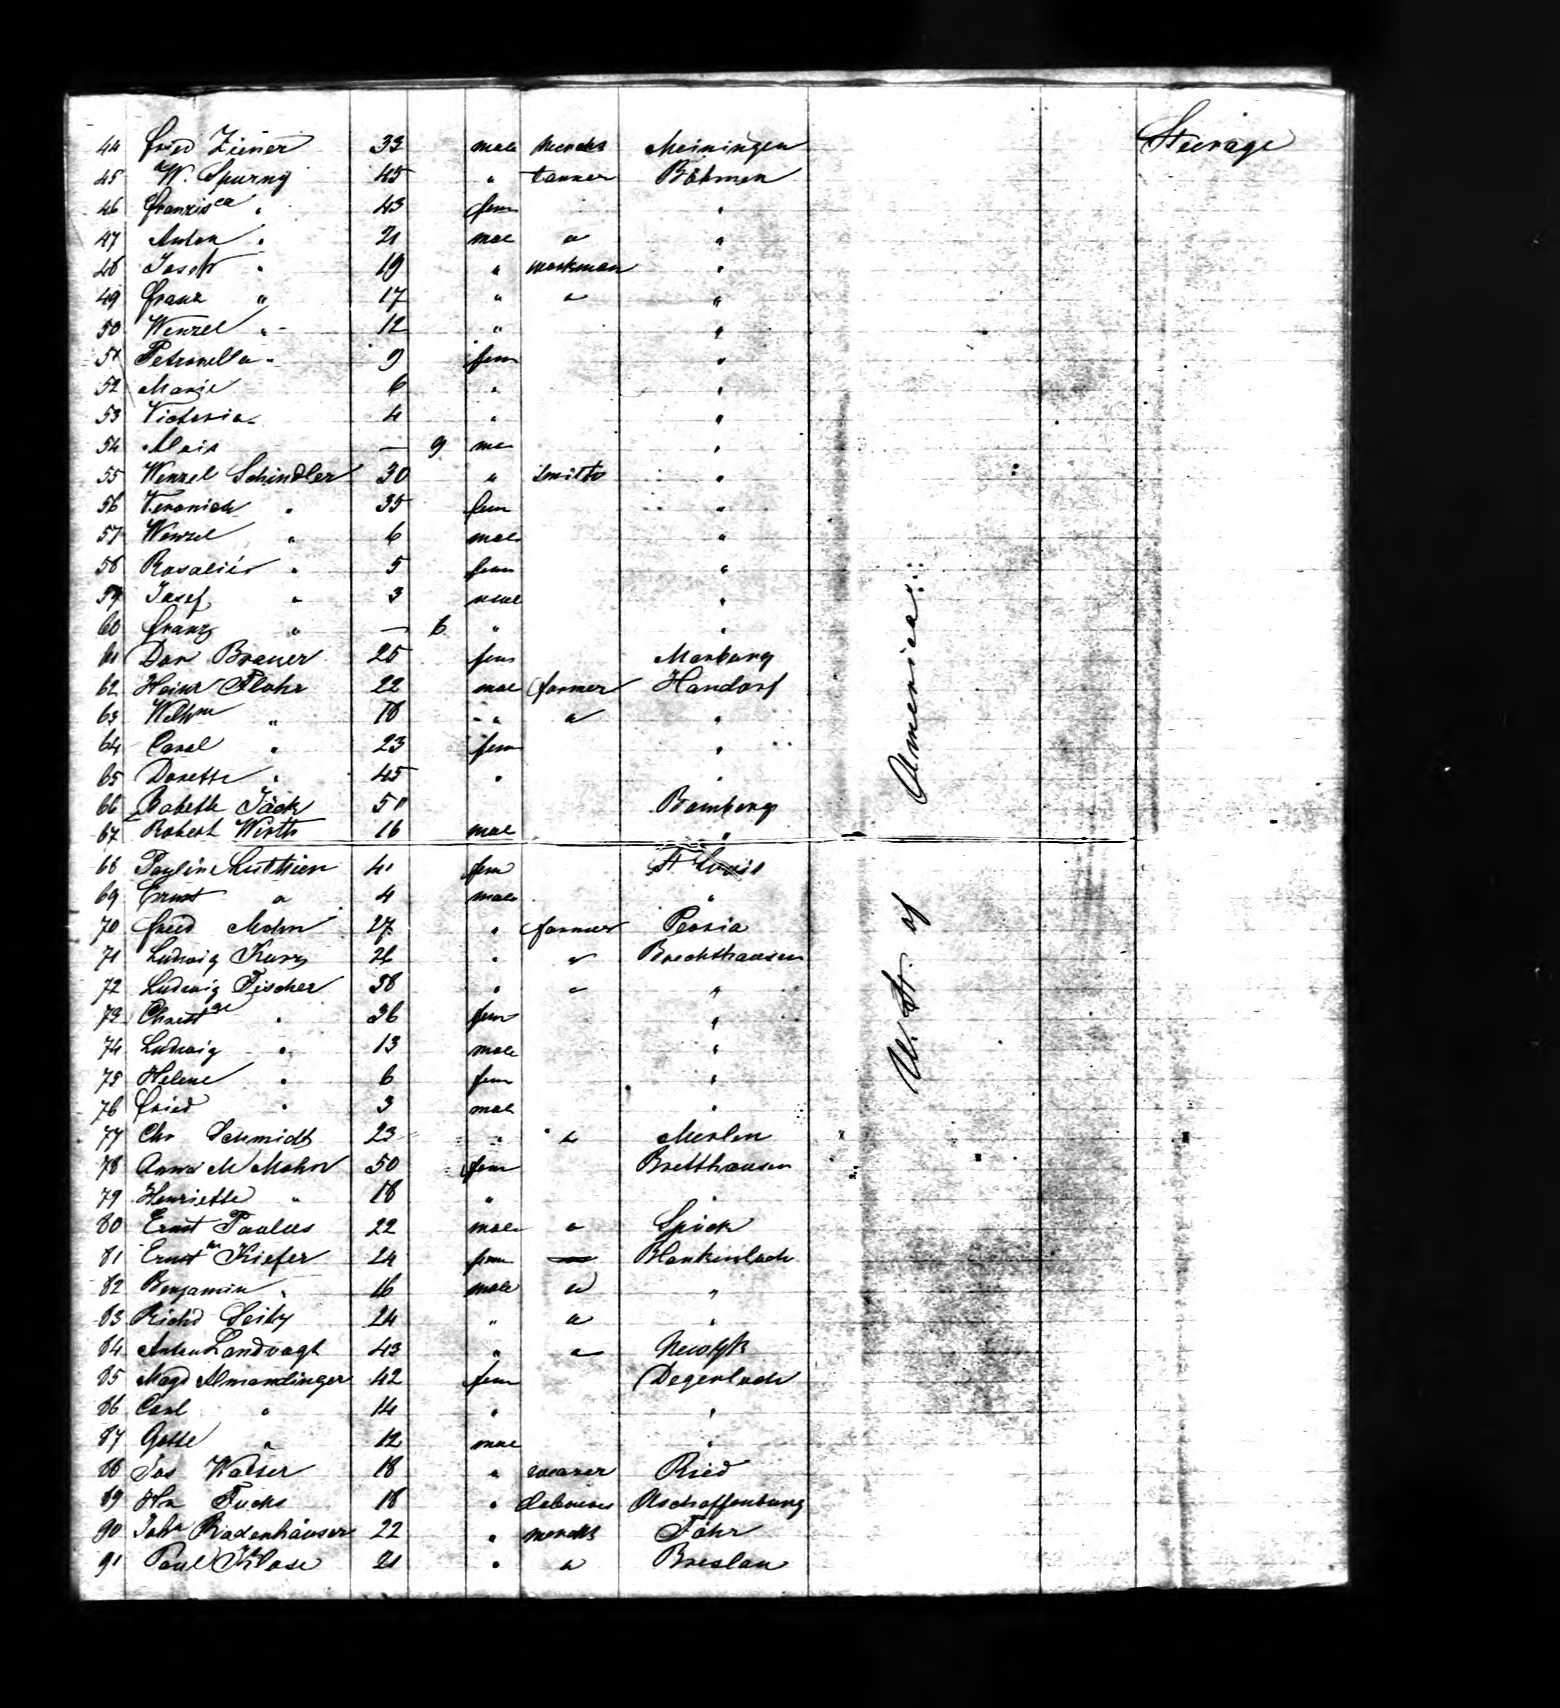 44 Fried Zimer 33 male merchs Meiningen Steerage
45 W. Spurny 45 " tanner Böhmen
46 Franzisca " 43 fem "
47 Anton " 21 mal " "
48 Josef " 19 " workman "
49 Franz " 17 " " "
50 Wenzel " 12 " "
51 Petronella " 9 fem "
52 Marie 6 " "
53 Victoria 4 " "
54 Alois — 9 me "
55 Wenzel Schindler 30 " Smith "
56 Veronich " 35 fem "
57 Wenzel " 6 male "
58 Rosalie " 5 fem "
59 Josef " 3 male "
60 Franz " — 6 " "
61 Dor Brauer 25 fem Marburg
62 Heinr Flohr 22 mal farmer Handorf
63 Wilhm " 18 " " "
64 Carol " 23 fem "
65 Dorette " 45 " "
66 Babette Jäck 51 Bamberg
67 Robert Wirth 16 mal "
68 Pauline Luthien 41 fem St Louis
69 Ernst " 4 male "
70 Fried Mohn 27 " farmer Peoria
71 Ludwig Kurz 26 " " Brechthausen
72 Ludwig Fischer 38 " " "
73 Christ " 36 fem "
74 Ludwig " 13 male "
75 Helene " 6 fem "
76 Fried " 3 mal "
77 Chr Schmidt 23 " " Merlen
78 Anna M Mohn 50 fem Bretthausen
79 Henriette " 18 " "
80 Ernst Paulus 22 male " Spick
81 Kiefer 24 fem — Blankenloch
82 Benjamin " 16 male " "
83 Richd Seitz 24 " " "
84 Anton Landvogt 43 " " NewYk
85 Magd Almendinger 42 fem Degerloch
86 Carl " 14 " "
87 Gotte " 12 mal "
88 Jos Walser 18 " weaver Ried
89 Hr Fuchs 18 " Aschaffenburg
90 Johs Radenhäuser 22 " merchs Föhr
91 Paul Klose 21 " " Breslau
U. St. of America